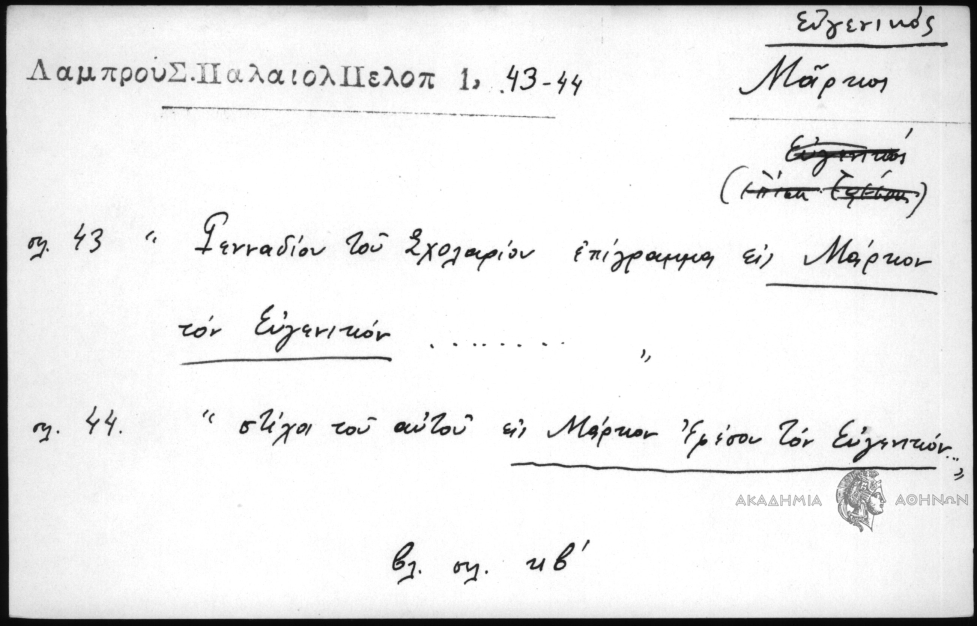 Εὐγενικός
ΛαμπρουΣ.ΠαλαιολΠελοπ 1, 43-44
Μᾶρκος
Εὐγενικός
(ἐπίσκ. Ἐφέσου)
σελ. 43 " Γενναδίου τοῦ Σχολαρίου ἐπίγραμμα εἰς Μάρκον
τόν Εὐγενικόν ......... "
σελ. 44. " στίχοι τοῦ αὐτοῦ εἰς Μάρκον Ἐφέσου τόν Εὐγενικόν... "
ΑΚΑΔΗΜΙΑ ΑΘΗΝΩΝ
βλ. σελ. κβ'